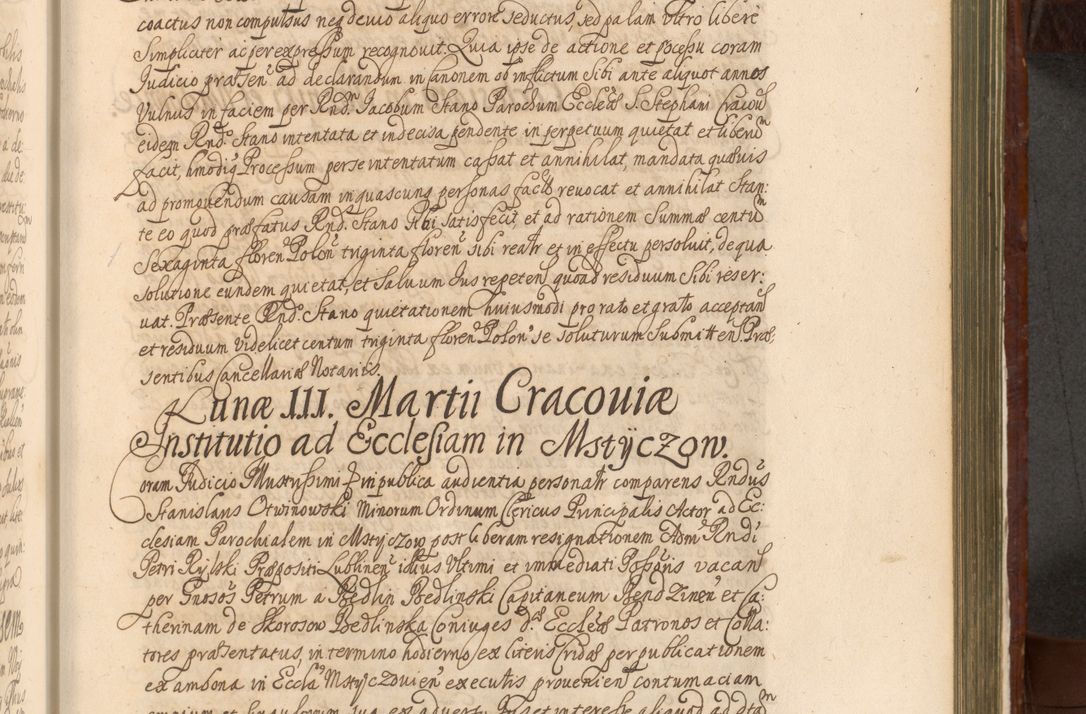 coactus non compulsus neq devio aliquo errore seductus, sed palam ultro libere
Simpliciter ac per expressum recognovit. Quia ipse de actione et processu coram
Judicio præsen ad declarandum in Canonem ob inflictum Sibi ante aliquot annos
Vulnus in faciem per Rnd. Jacobum Stano Parochum Ecclæ S. Stephani Cracou
eidem Rnd. Stano intentata et indecisa pendente in perpetuum quietat et liberu
facit, hmodiq Processum per se intentatum cassat et annihilat, mandata quævis
ad promovendum causam in quascunq personas facta revocat et annihilat Stan:
te eo quod præfatus Rnd. Stano Sibi Satisfecit, et ad rationem Summæ centu
Sexaginta floren Polon triginta floren sibi realr et in effectu persoluit, de qua
solutione eundem quietat, et Salvum Jus repeten quoad residuum Sibi reser:
uat. Præsente Rnd. Stano quietationem huiusmodi pro rato et grato acceptan
et residuum videlicet centum triginta floren Polon se soluturum Submitten. Præ:
sentibus Cancellariæ Notariis.
Lunæ III. Martii Cracoviæ
Institutio ad Ecclesiam in Mstÿczow.
Coram Judicio Illustrissimi in publica audientia personalr comparens Rndus
Stanislaus Otwinowski Minorum Ordinum Clericus Principalis Actor ad Ec:
clesiam Parochialem in Mstyczow post liberam resignationem Adm Rndi
Petri Rylski Præpositi Lublinen illius Ultimi et immediati Possoris vacan
per Gnosos Petrum a Bedlin Bedlinski Capitaneum Bendzinen et Ca:
therinam de Skorosow Bedlinska Coniuges d. Ecclæ Patronos et Colla:
tores præsentatus, in termino hodierno ex literis Cridæ per publicationem
ex ambona in Eccla Mstyczovien executis provenien contumaciam
omnium et singulorum sua ex adverso Inteet interesse aliquod ad dta